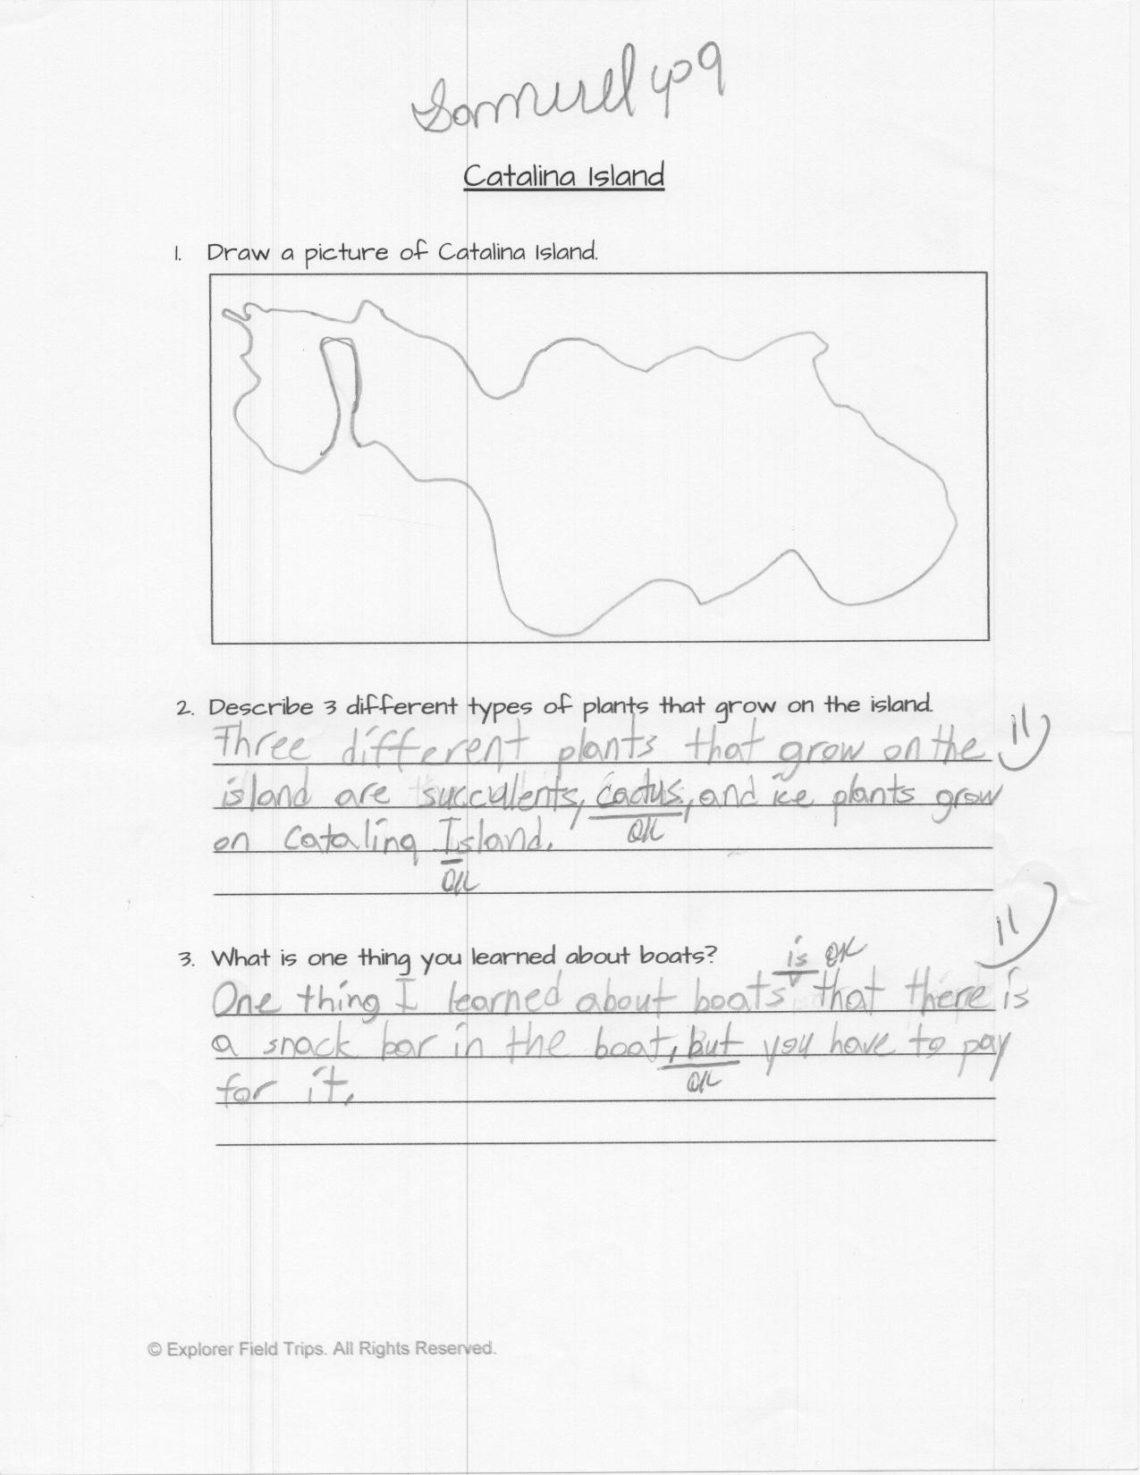 Samuel yo 9
Catalina Island
1. Draw a picture of Catalina Island.
2. Describe 3 different types of plants that grow on the island.
Three different plants that grow on the
island are succulents, cactus, and ice plants grow
OK
on Catalina Island.
OK
3. What is one thing you learned about boats?
is OK
One thing I learned about boats that there is
a snack bar in the boat, but you have to pay
OK
for it.
© Explorer Field Trips. All Rights Reserved.